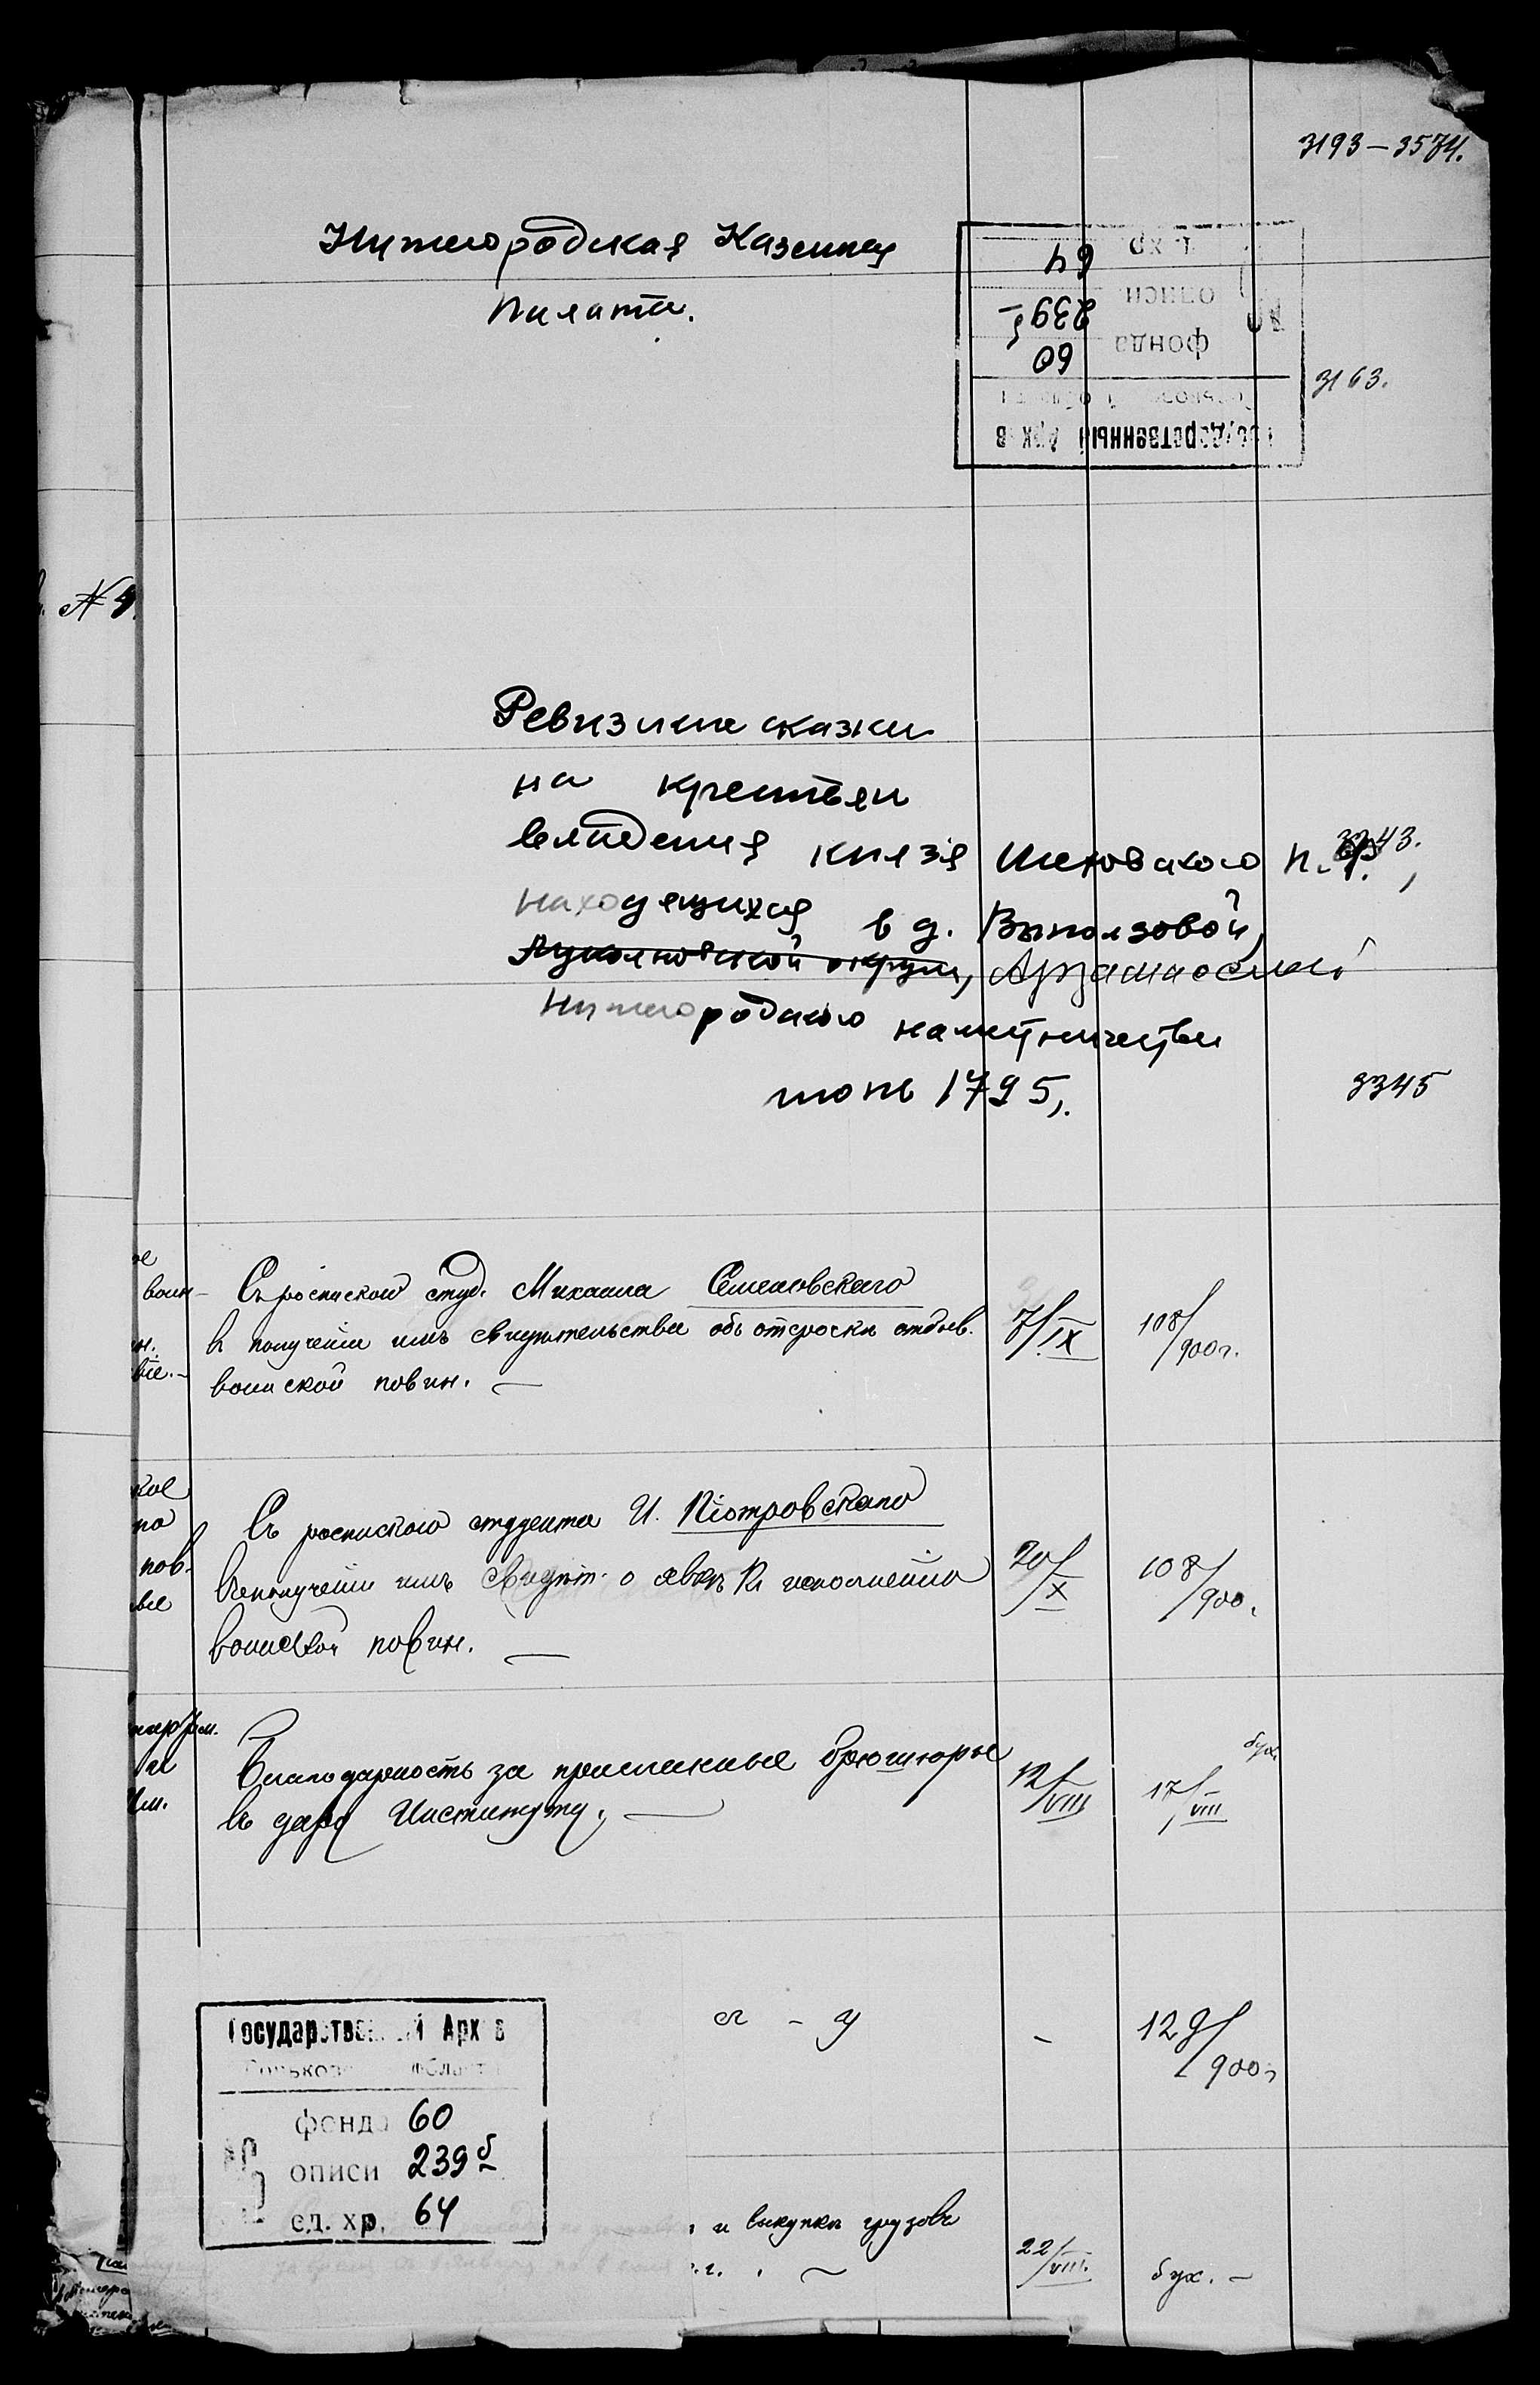 3193 – 3574.
Нижегородская Казенная
палата.
Государственный Архив
фонда 60
описи 239б
ед. хр. 64
3163.
№ 4.
Ревизские сказки
на крестьян
владения князя Шаховского П. Ф.,
3243.
находящихся в д. Выползовой,
Лукояновской округи, Арзамасской
Нижегородского наместничества
июнь 1795 г.
3345
воин-
Съ роспиской студ. Михаила Семеновскаго
в получении имъ свидѣтельства объ отсрочкѣ отбыв.
воинской повин. —
7/IX
108/900 г.
кое
по
пов.
вые
Съ роспискою студента И. Піотровскаго
въ полученіи имъ свидѣт. о явкѣ къ исполненію
воинской повин. —
20/X
108/900 г.
Благодарность за присланные брошюры
въ даръ Институту. —
12/VIII
17/VIII
бух.
а - у
-
129/900 г.
и выкупкѣ грузовъ
22/VIII.
бух. –
Государственный Архив
Горьковской области
фонда 60
описи 239б
ед. хр. 64